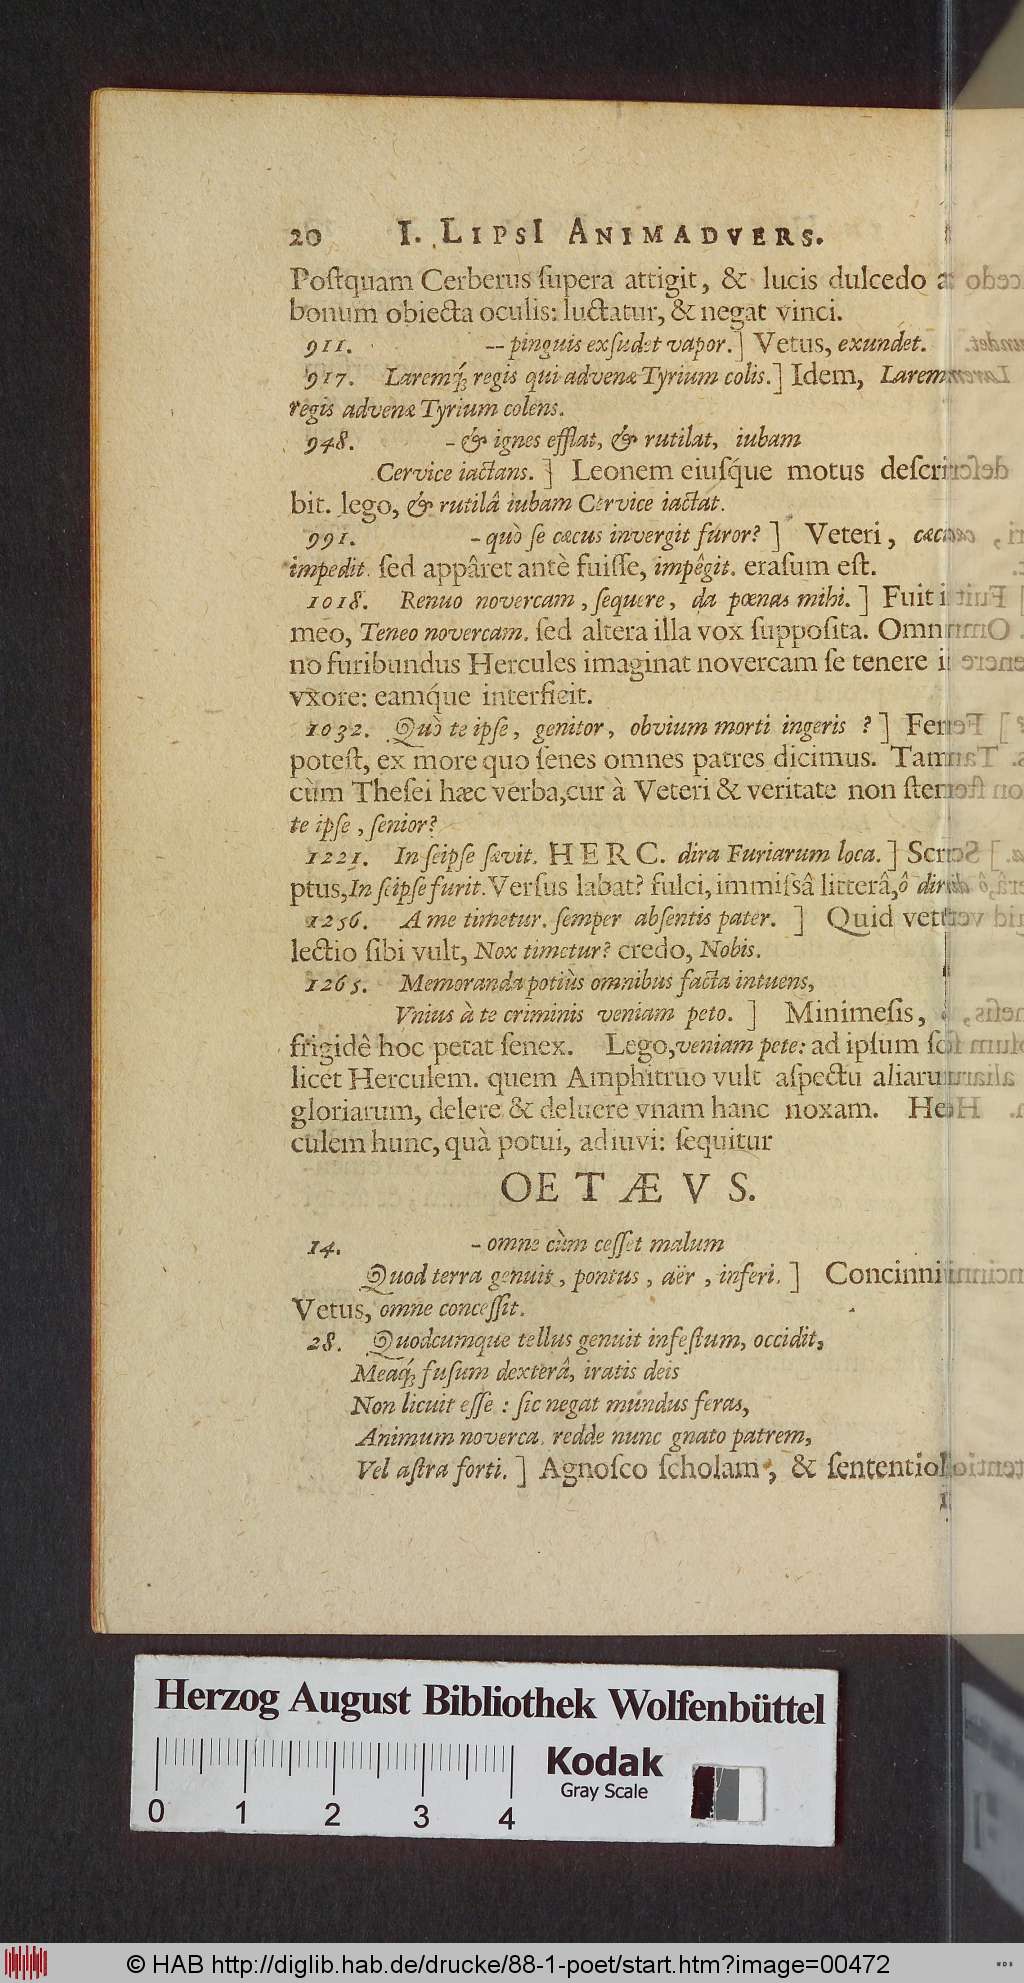 20 I. LIPSI ANIMADVERS.
Poſtquam Cerberus ſupera attigit, & lucis dulcedo
bonum obiecta oculis: luctatur, & negat vinci.
911. -- pinguis exſudet vapor.] Vetus, exundet.
917. Laremq́; regis qui advenæ Tyrium colis.] Idem, Larem
regis advenæ Tyrium colens.
948. - & ignes efflat, & rutilat, iubam
Cervice iactans. ] Leonem eiuſq́ue motus deſcri
bit. lego, & rutilâ iubam Cervice iactat.
991. - quò ſe cæcus invergit furor? ] Veteri,
impedit. ſed appâret antè fuiſſe, impêgit. eraſum eſt.
1018. Renuo novercam, ſequere, da pœnas mihi. ] Fuit i
meo, Teneo novercam. ſed altera illa vox ſuppoſita. Omni
no furibundus Hercules imaginat novercam ſe tenere i
vxore: eamq́ue interficit.
1032. Quò te ipſe, genitor, obvium morti ingeris ? ] Fer
poteſt, ex more quo ſenes omnes patres dicimus. Tam
cùm Theſei hæc verba, cur à Veteri & veritate non ſte
te ipſe, ſenior?
1221. In ſeipſe ſævit. HERC. dira Furiarum loca. ] Scri
ptus, In ſeipſe furit. Verſus labat? fulci, immiſsâ litterâ, ô dira
1256. A me timetur. ſemper abſentis pater. ] Quid vetus
lectio ſibi vult, Nox timetur? credo, Nobis.
1265. Memoranda potiùs omnibus facta intuens,
Vnius à te criminis veniam peto. ] Minimeſis,
frigidê hoc petat ſenex. Lego, veniam pete: ad ipſum ſci
licet Herculem. quem Amphitruo vult aſpectu aliarum
gloriarum, delere & deluere vnam hanc noxam. Her
culem hunc, quà potui, adiuvi: ſequitur
OETÆVS.
14. - omne cùm ceſſet malum
Quod terra genuit, pontus, aër, inferi. ] Concinni
Vetus, omne conceſſit.
28. Quodcumque tellus genuit infeſtum, occidit,
Meaq́; fuſum dexterâ, iratis deis
Non licuit eſſe : ſic negat mundus feras,
Animum noverca. redde nunc gnato patrem,
Vel aſtra forti. ] Agnoſco ſcholam, & ſententiol
Herzog August Bibliothek Wolfenbüttel
Kodak
Gray Scale
0 1 2 3 4
© HAB http://diglib.hab.de/drucke/88-1-poet/start.htm?image=00472